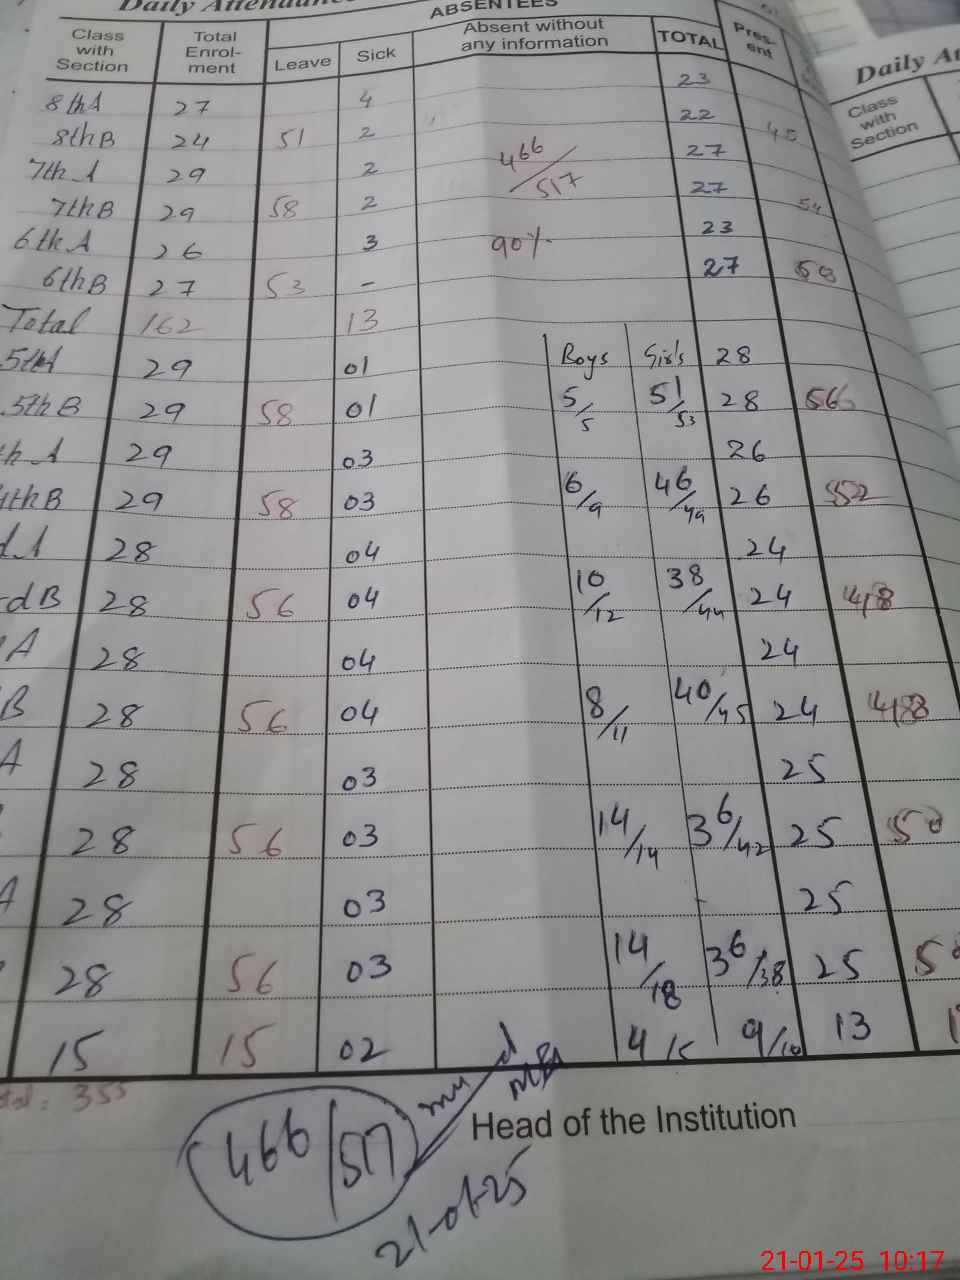 Daily Attendance
ABSENTEES
Class with Section | Total Enrol-ment | Leave | Sick | Absent without any information | TOTAL | Pres-ent
8thA 27 4 23
8thB 24 51 2 22 45
7th A 29 2 466/517 27
7thB 29 58 2 27 54
6thA 26 3 90% 23
6thB 27 53 - 27 50
Total 162 13
5thA 29 01 Boys Girls 28
5thB 29 58 01 5/5 51/53 28 56
th A 29 03 26
4thB 29 58 03 6/9 46/49 26 52
d A 28 04 24
dB 28 56 04 10/12 38/44 24 48
A 28 04 24
B 28 56 04 8/11 40/45 24 48
A 28 03 25
28 56 03 14/14 36/42 25 50
A 28 03 - 25
28 56 03 14/18 36/38 25
15 15 02 4/5 9/10 13
tal: 355
466/517
Head of the Institution
21-01-25
Daily At
Class with Section
21-01-25 10:17